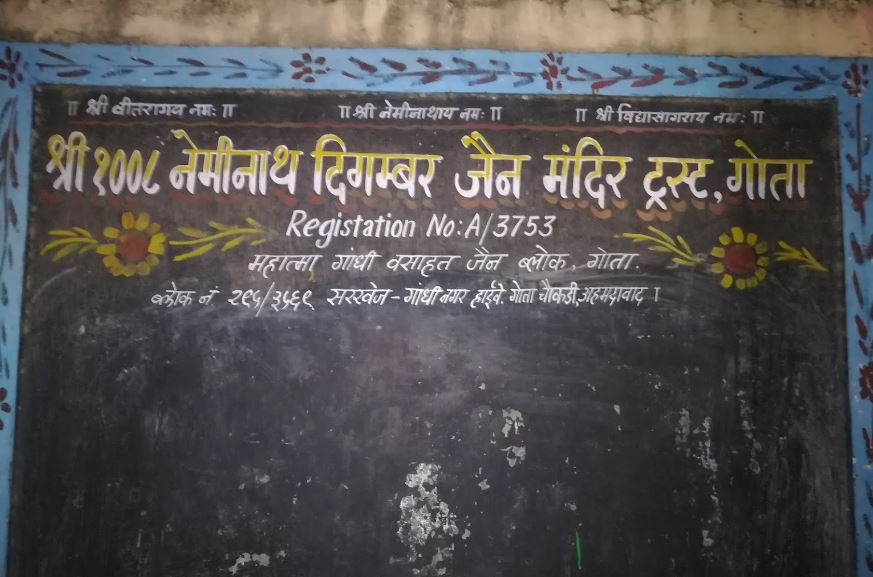 ॥ श्री वीतरागाय नमः ॥ ॥ श्री नेमीनाथाय नमः ॥ ॥ श्री विद्यासागराय नमः ॥
श्री १००८ नेमीनाथ दिगम्बर जैन मंदिर ट्रस्ट, गोता
Registation No: A/3753
महात्मा गांधी वसाहत जैन ब्लोक, गोता.
ब्लोक नं २९५/३५६९ सरखेज - गांधीनगर हाईवे, गोता चौकडी, अहमदावाद ।